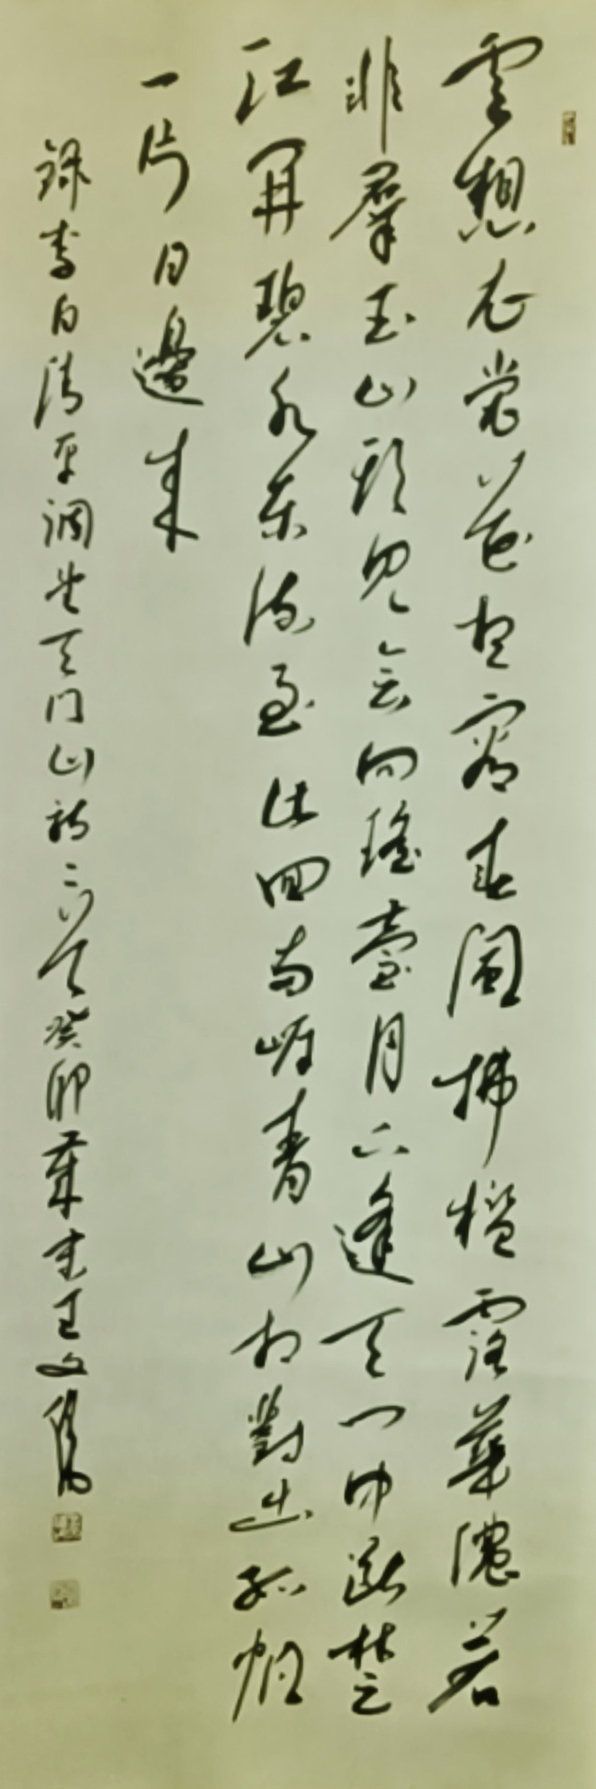 雲想衣裳花想容春風拂檻露華濃若
非羣玉山頭見會向瑤臺月下逢天門中斷楚
江開碧水東流至此回兩岸青山相對出孤帆
一片日邊來
録李白清平調望天门山詩二首癸卯葉月王文